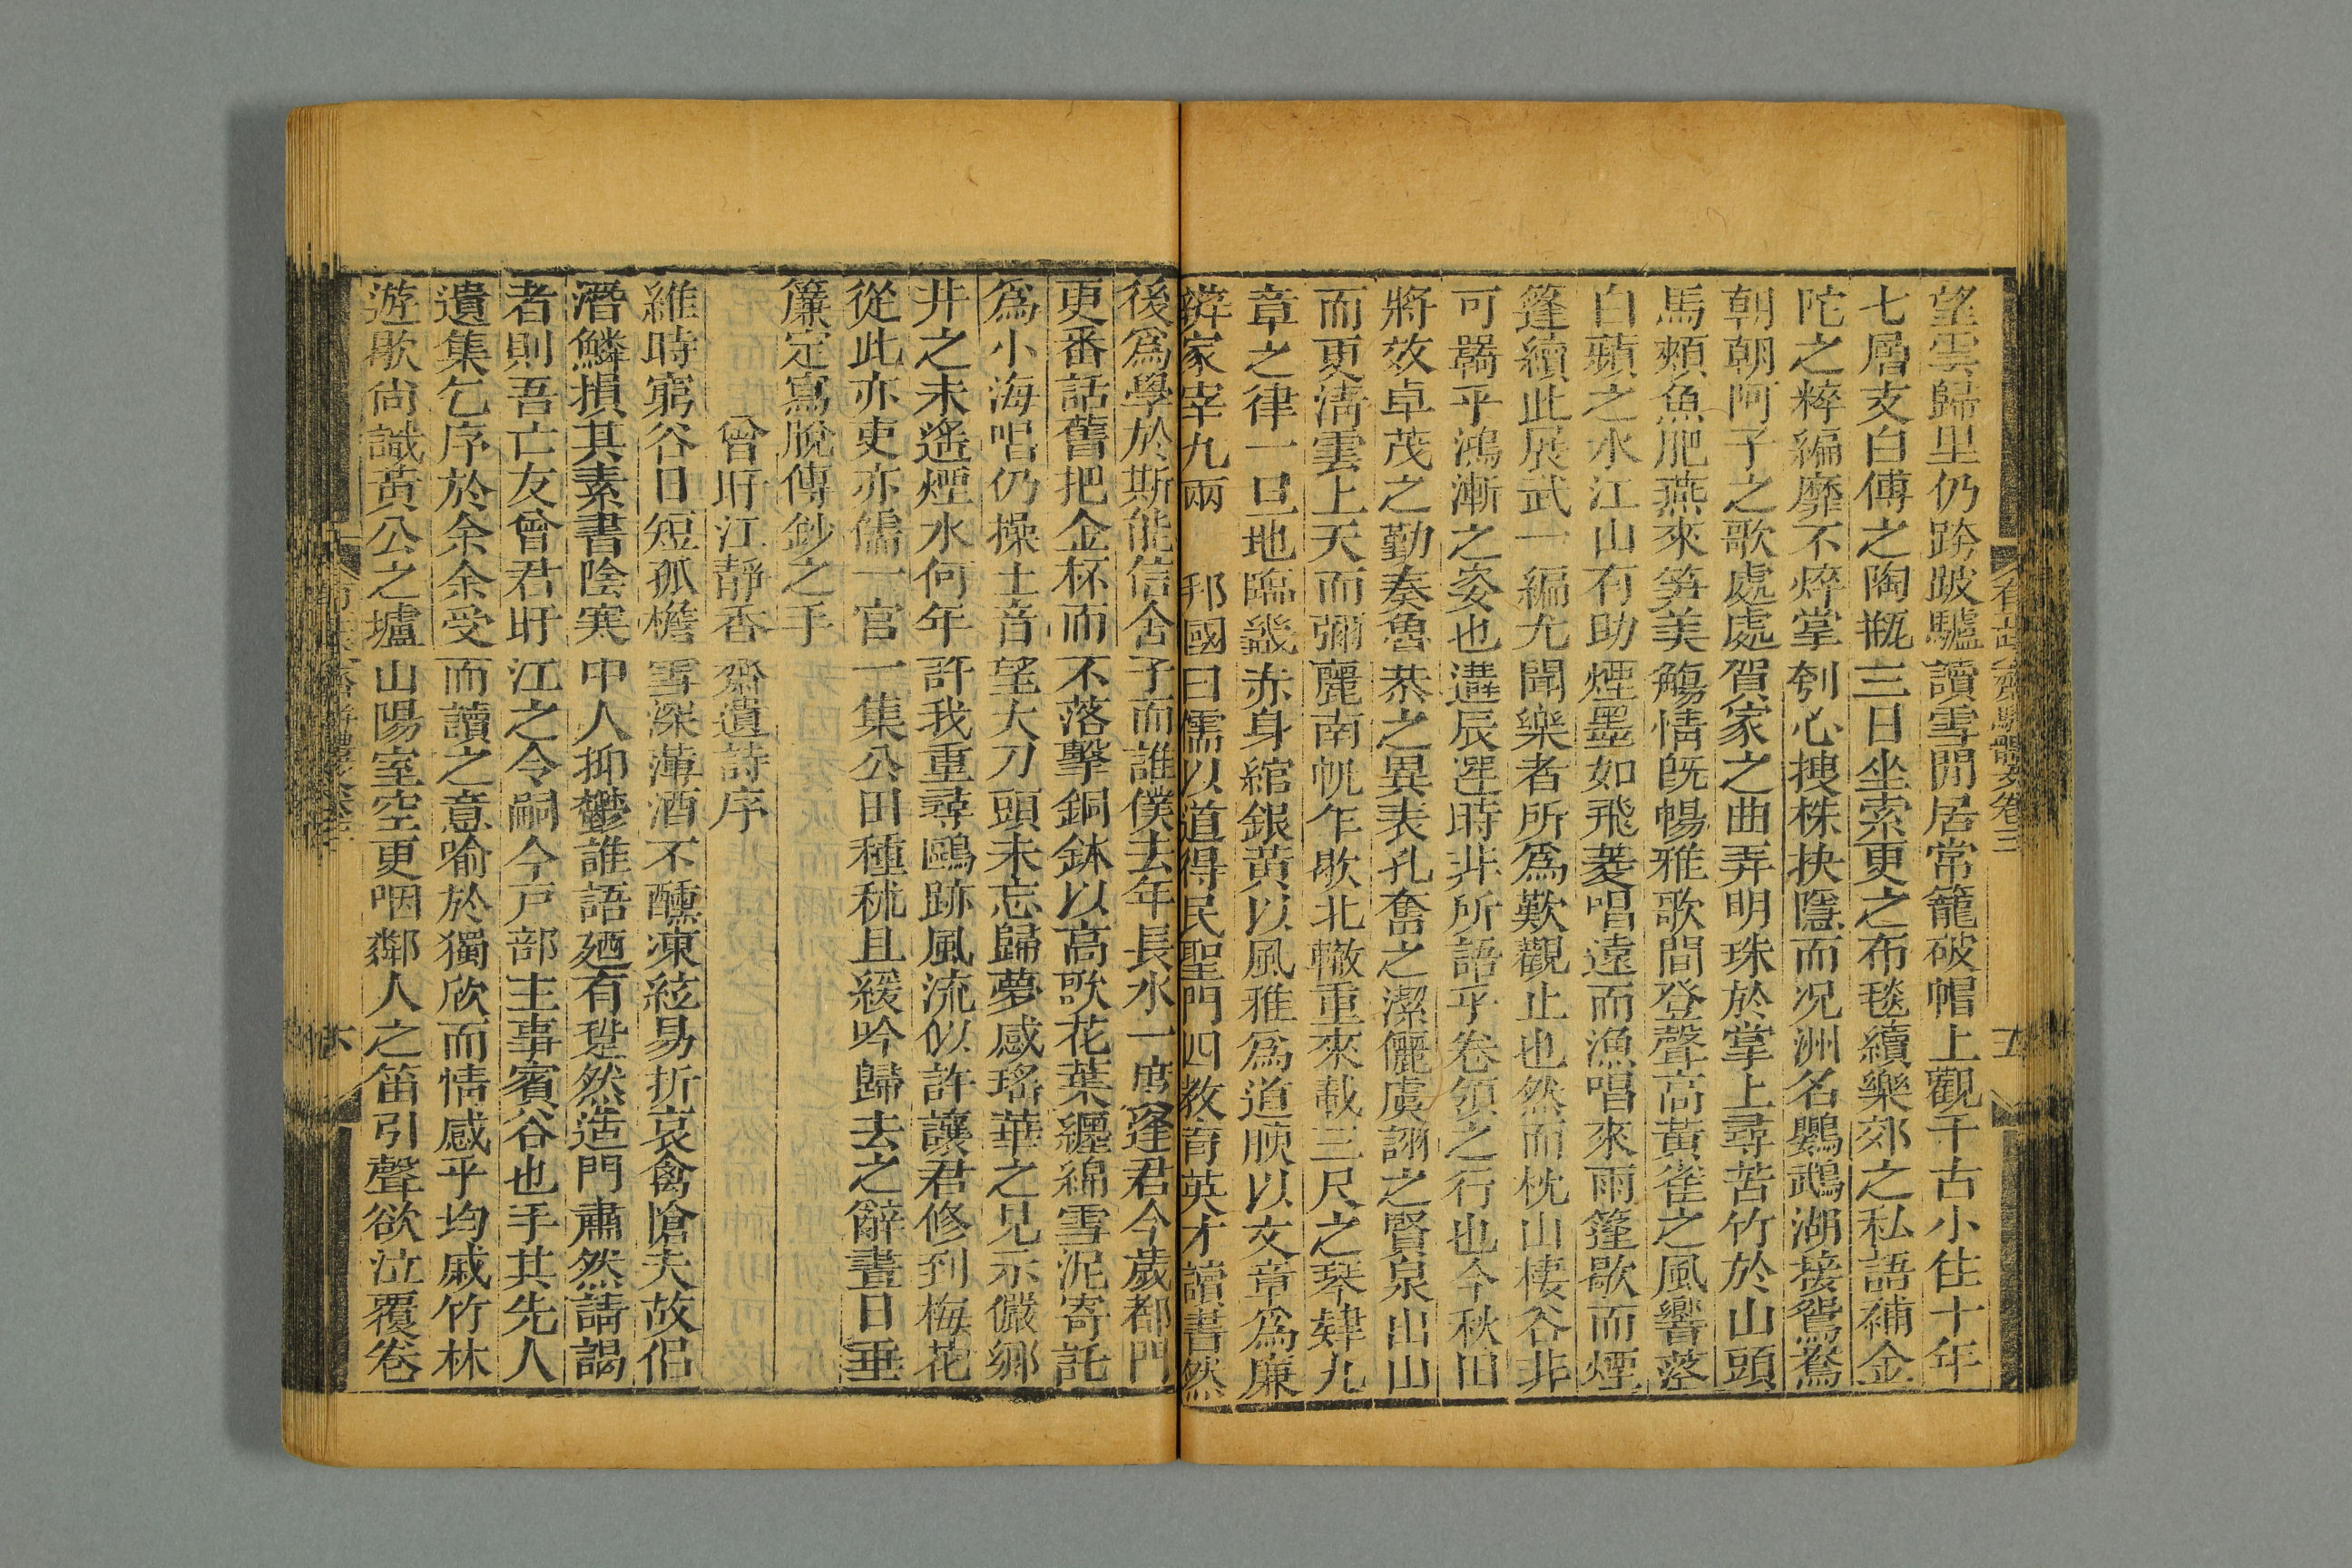 望雲歸里仍跨跛驢讀雪閒居常籠破帽上觀千古小住十年
七層支白傅之陶瓶三日坐索更之布毯續樂郊之私語補金
陀之粹編靡不焠掌刳心搜株抉隱而况洲名鸚鵡湖接鴛鴦
朝朝阿子之歌處處賀家之曲弄明珠於掌上尋苦竹於山頭
馬頰魚肥燕來笋美觴情旣暢雅歌間登聲高黃雀之風響落
白蘋之水江山有助煙墨如飛菱唱遠而漁唱來雨篷歇而煙
篷續此展武一編尤聞樂者所爲歎觀止也然而枕山棲谷非
可羂乎鴻漸之姿也遘辰遌時非所語乎卷領之行也今秋旧
將效卓茂之勤奏魯恭之異表孔奮之潔儷虞詡之賢泉出山
而更淸雲上天而彌麗南帆乍歇北轍重來載三尺之琴肄九
章之律一旦地臨畿赤身綰銀黃以風雅爲道腴以文章爲廉
辨家宰九兩 邦國曰儒以道得民聖門四教育英才讀書然
後爲學於斯能信舍子而誰僕去年長水一席逢君今歲都門
更番話舊把金杯而不落擊銅鉢以高歌花葉纏綿雪泥寄託
爲小海唱仍操土音望大刀頭未忘歸夢感瑤華之見示儼鄉
井之未遙煙水何年許我重尋鷗跡風流似許讓君修到梅花
從此亦吏亦儒一官一集公田種秫且緩吟歸去之辭晝日垂
簾定寫脫傳鈔之手
曾盱江靜香齋遺詩序
維時窮谷日短孤檐雪深薄酒不醺凍絃易折哀禽愴夫故侶
潛鱗損其素書陰寒中人抑鬱誰語廼有跫然造門肅然請謁
者則吾亡友曾君盱江之令嗣今戶部主事賓谷也手其先人
遺集乞序於余余受而讀之意喻於獨欣而情感乎均戚竹林
遊歇尙識黃公之壚山陽室空更咽鄰人之笛引聲欲泣覆卷